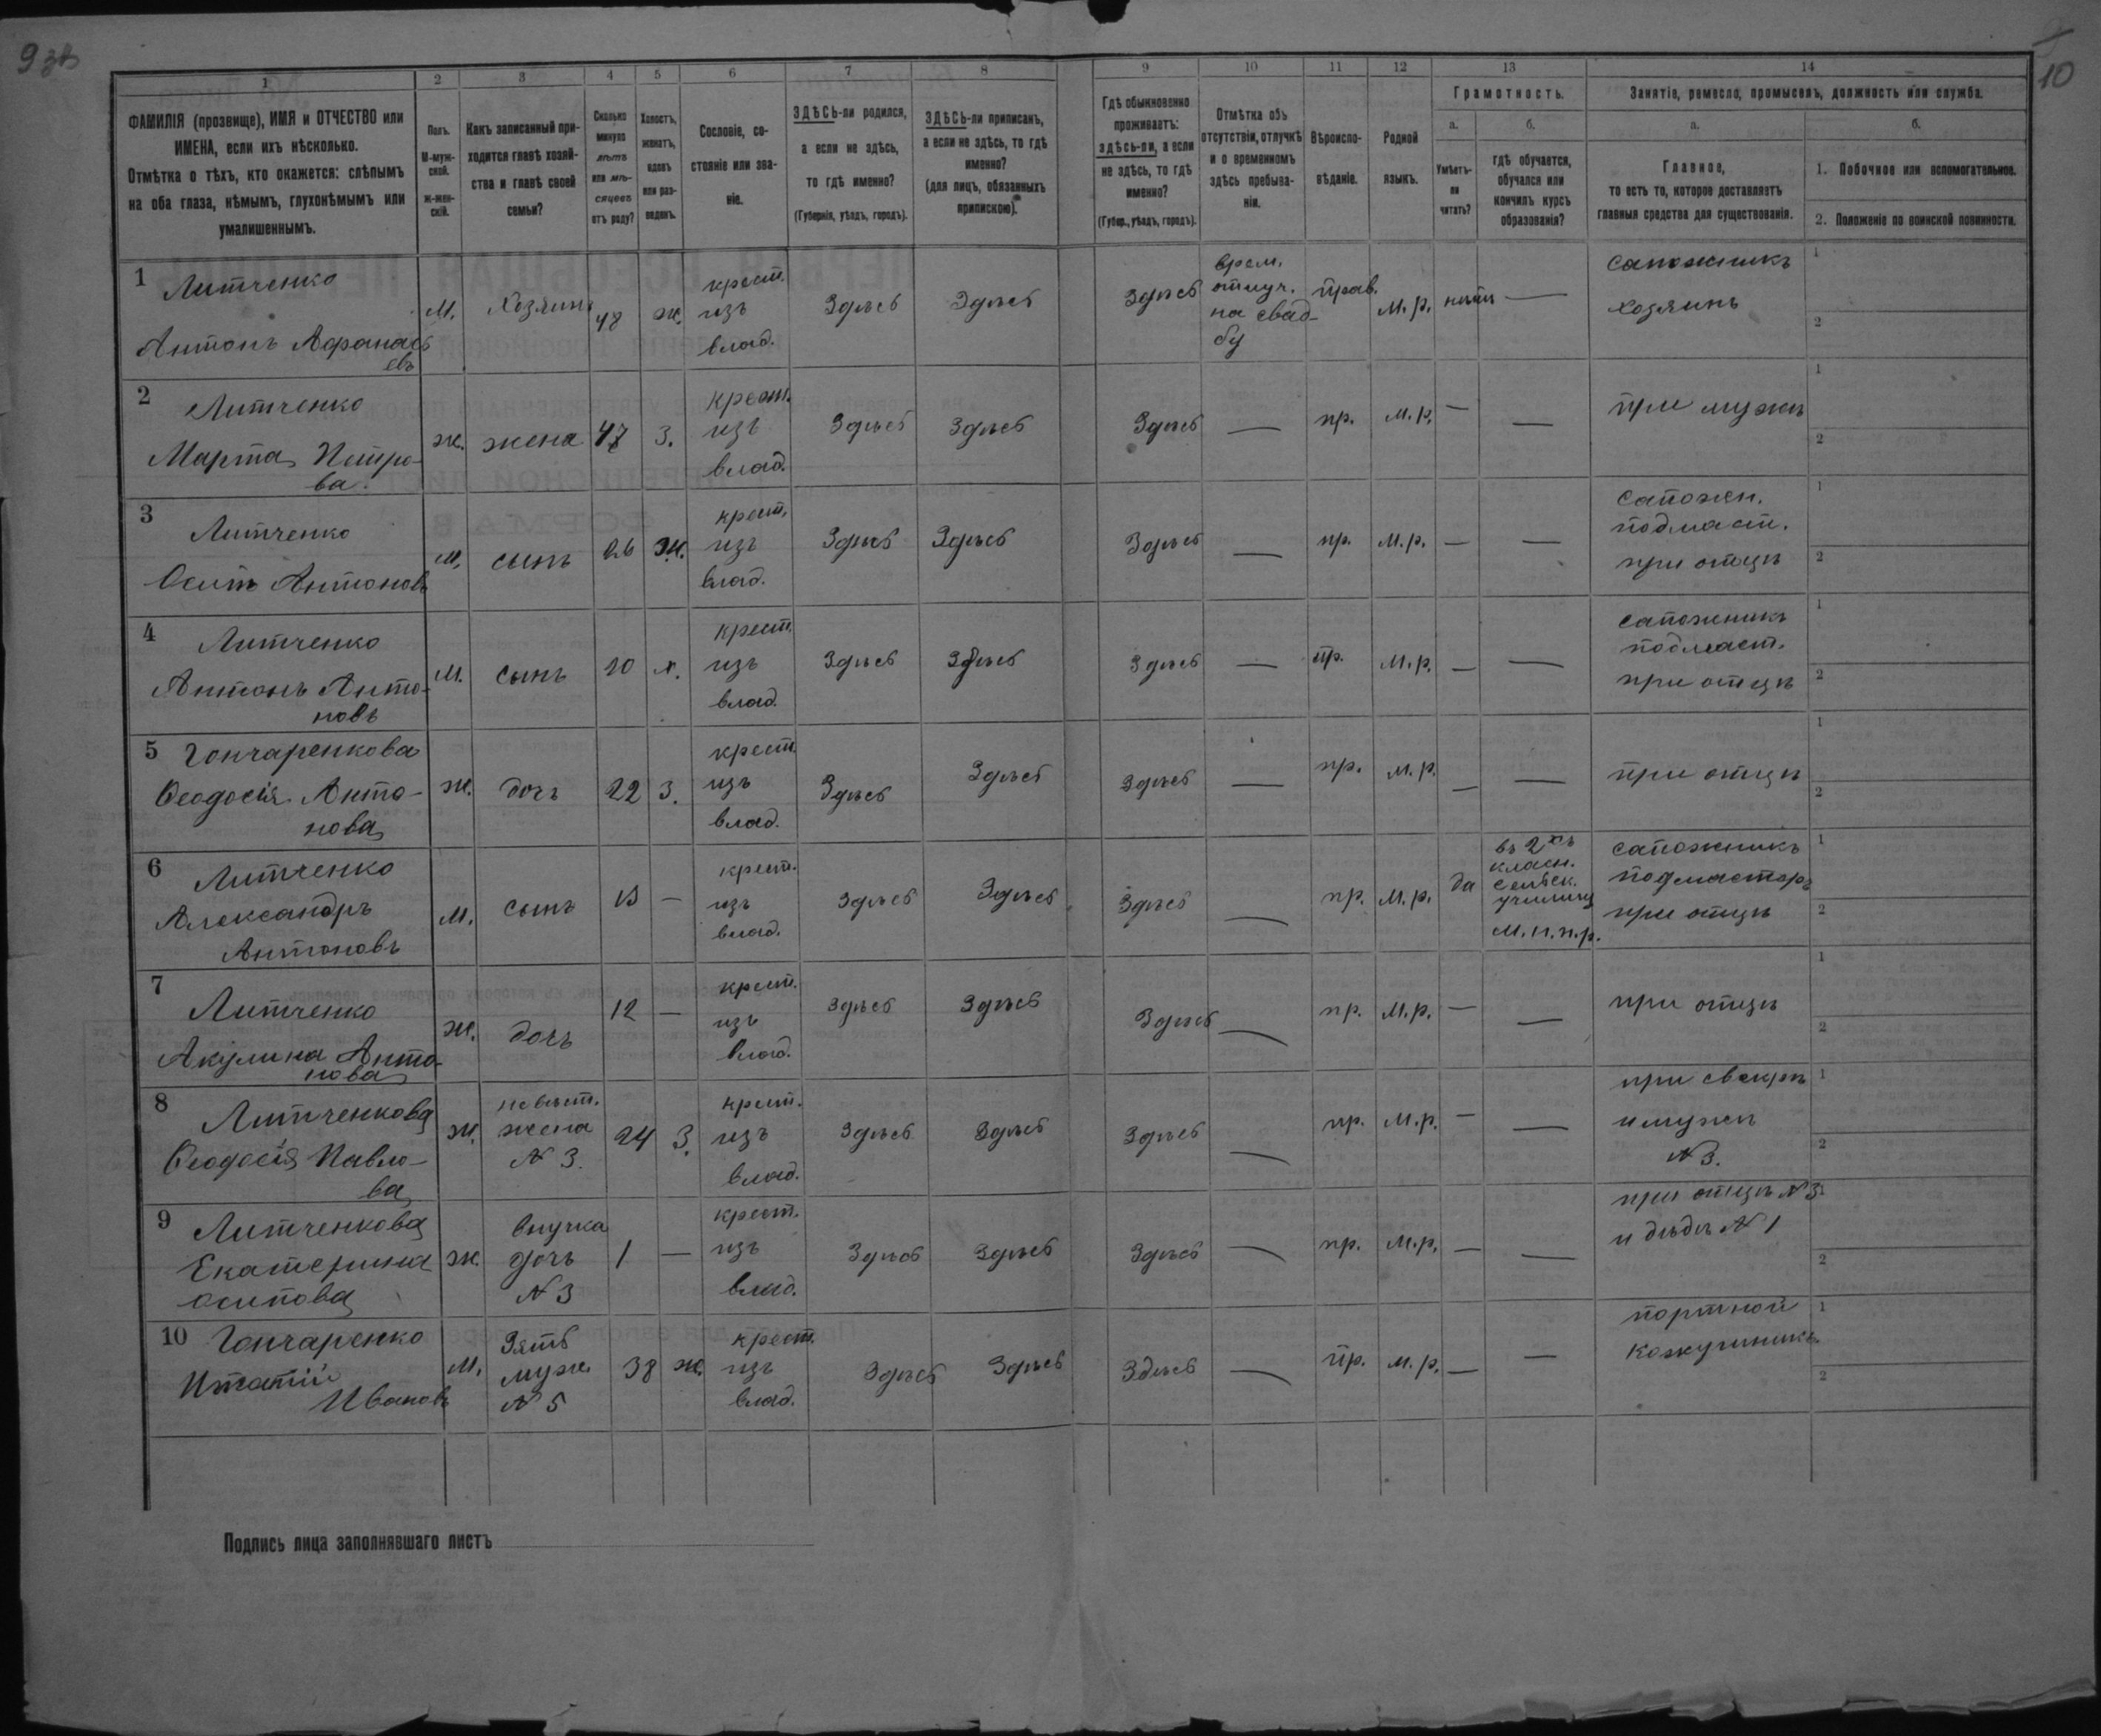 9 зв
10
1 2 3 4 5 6 7 8 9 10 11 12 13 14
ФАМИЛІЯ (прозвище), ИМЯ и ОТЧЕСТВО или
ИМЕНА, если ихъ нѣсколько.
Отмѣтка о тѣхъ, кто окажется: слѣпымъ
на оба глаза, нѣмымъ, глухонѣмымъ или
умалишеннымъ.
Полъ.
М-муж-
ской.
Ж-жен-
скій.
Какъ записанный при-
ходится главѣ хозяй-
ства и главѣ своей
семьи?
Сколько
минуло
лѣтъ
или мѣ-
сяцевъ
отъ роду?
Холостъ,
женатъ,
вдовъ
или раз-
веденъ.
Сословіе, со-
стояніе или зва-
ніе.
ЗДѢСЬ-ли родился,
а если не здѣсь,
то гдѣ именно?
(Губернія, уѣздъ, городъ).
ЗДѢСЬ-ли приписанъ,
а если не здѣсь, то гдѣ
именно?
(для лицъ, обязанныхъ
припискою).
Гдѣ обыкновенно
проживаетъ:
здѣсь-ли, а если
не здѣсь, то гдѣ
именно?
(Губер., уѣздъ, городъ).
Отмѣтка объ
отсутствіи, отлучкѣ
и о временномъ
здѣсь пребыва-
ніи.
Вѣроиспо-
вѣданіе.
Родной
языкъ.
Грамотность.
а.
Умѣетъ-
ли
читать?
б.
гдѣ обучается,
обучался или
кончилъ курсъ
образованія?
Занятіе, ремесло, промыселъ, должность или служба.
а.
Главное,
то есть то, которое доставляетъ
главныя средства для существованія.
б.
1. Побочное или вспомогательное.
2. Положеніе по воинской повинности.
1 Литченко
Антонъ Афанась
евъ
М. Хозяинъ 48 ж.
крест.
изъ
влад.
Здѣсь Здѣсь Здѣсь
врем.
отлуч.
на свад-
бу
прав. М.р. нѣтъ —
сапожникъ
хозяинъ
1
2
2 Литченко
Марта Петро-
ва.
ж. жена 47 З.
крест.
изъ
влад.
Здѣсь Здѣсь Здѣсь — пр. М.р. — —
при мужѣ
1
2
3 Литченко
Осипъ Антоновъ
М. сынъ 26 Ж.
крест.
изъ
влад.
Здѣсь Здѣсь Здѣсь — пр. М.р. — —
сапожн.
подмаст.
при отцѣ
1
2
4 Литченко
Антонъ Анто-
новъ
М. сынъ 20 х.
крест.
изъ
влад.
Здѣсь Здѣсь Здѣсь — пр. М.р. — —
сапожникъ
подмаст.
при отцѣ
1
2
5 Гончаренкова
Ѳеодосія Анто-
нова
ж. дочь 22 З.
крест.
изъ
влад.
Здѣсь Здѣсь Здѣсь — пр. М.р. — —
при отцѣ
1
2
6 Литченко
Александръ
Антоновъ
М. сынъ —
крест.
изъ
влад.
Здѣсь Здѣсь Здѣсь — пр. М.р. да
въ 2хъ
класн.
сельск.
училищ
М.н.п.р.
сапожникъ
подмастеръ
при отцѣ
1
2
7 Литченко
Акулина Анто-
нова
ж. дочь 12 —
крест.
изъ
влад.
Здѣсь Здѣсь Здѣсь — пр. М.р. — —
при отцѣ
1
2
8 Литченкова
Ѳеодосія Павло-
ва
ж.
невѣст.
жена
№ 3.
24 З.
крест.
изъ
влад.
Здѣсь Здѣсь Здѣсь — пр. М.р. — —
при свекрѣ
и мужѣ
№ 3.
1
2
9 Литченкова
Екатерина
Осипова
ж.
внучка
дочь
№ 3
1 —
крест.
изъ
влад.
Здѣсь Здѣсь Здѣсь — пр. М.р. — —
при отцѣ № 3
и дѣдѣ № 1
1
2
10 Гончаренко
Игнатій
Ивановъ
М.
Зять
муж
№ 5
38 ж.
крест.
изъ
влад.
Здѣсь Здѣсь Здѣсь — пр. М.р. — —
портной
кожушникъ
1
2
Подпись лица заполнявшаго листъ